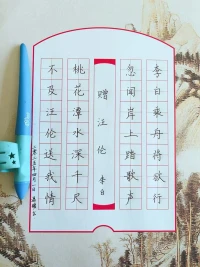 李白乘舟将欲行
忽闻岸上踏歌声
赠汪伦 李白
桃花潭水深千尺
不及汪伦送我情